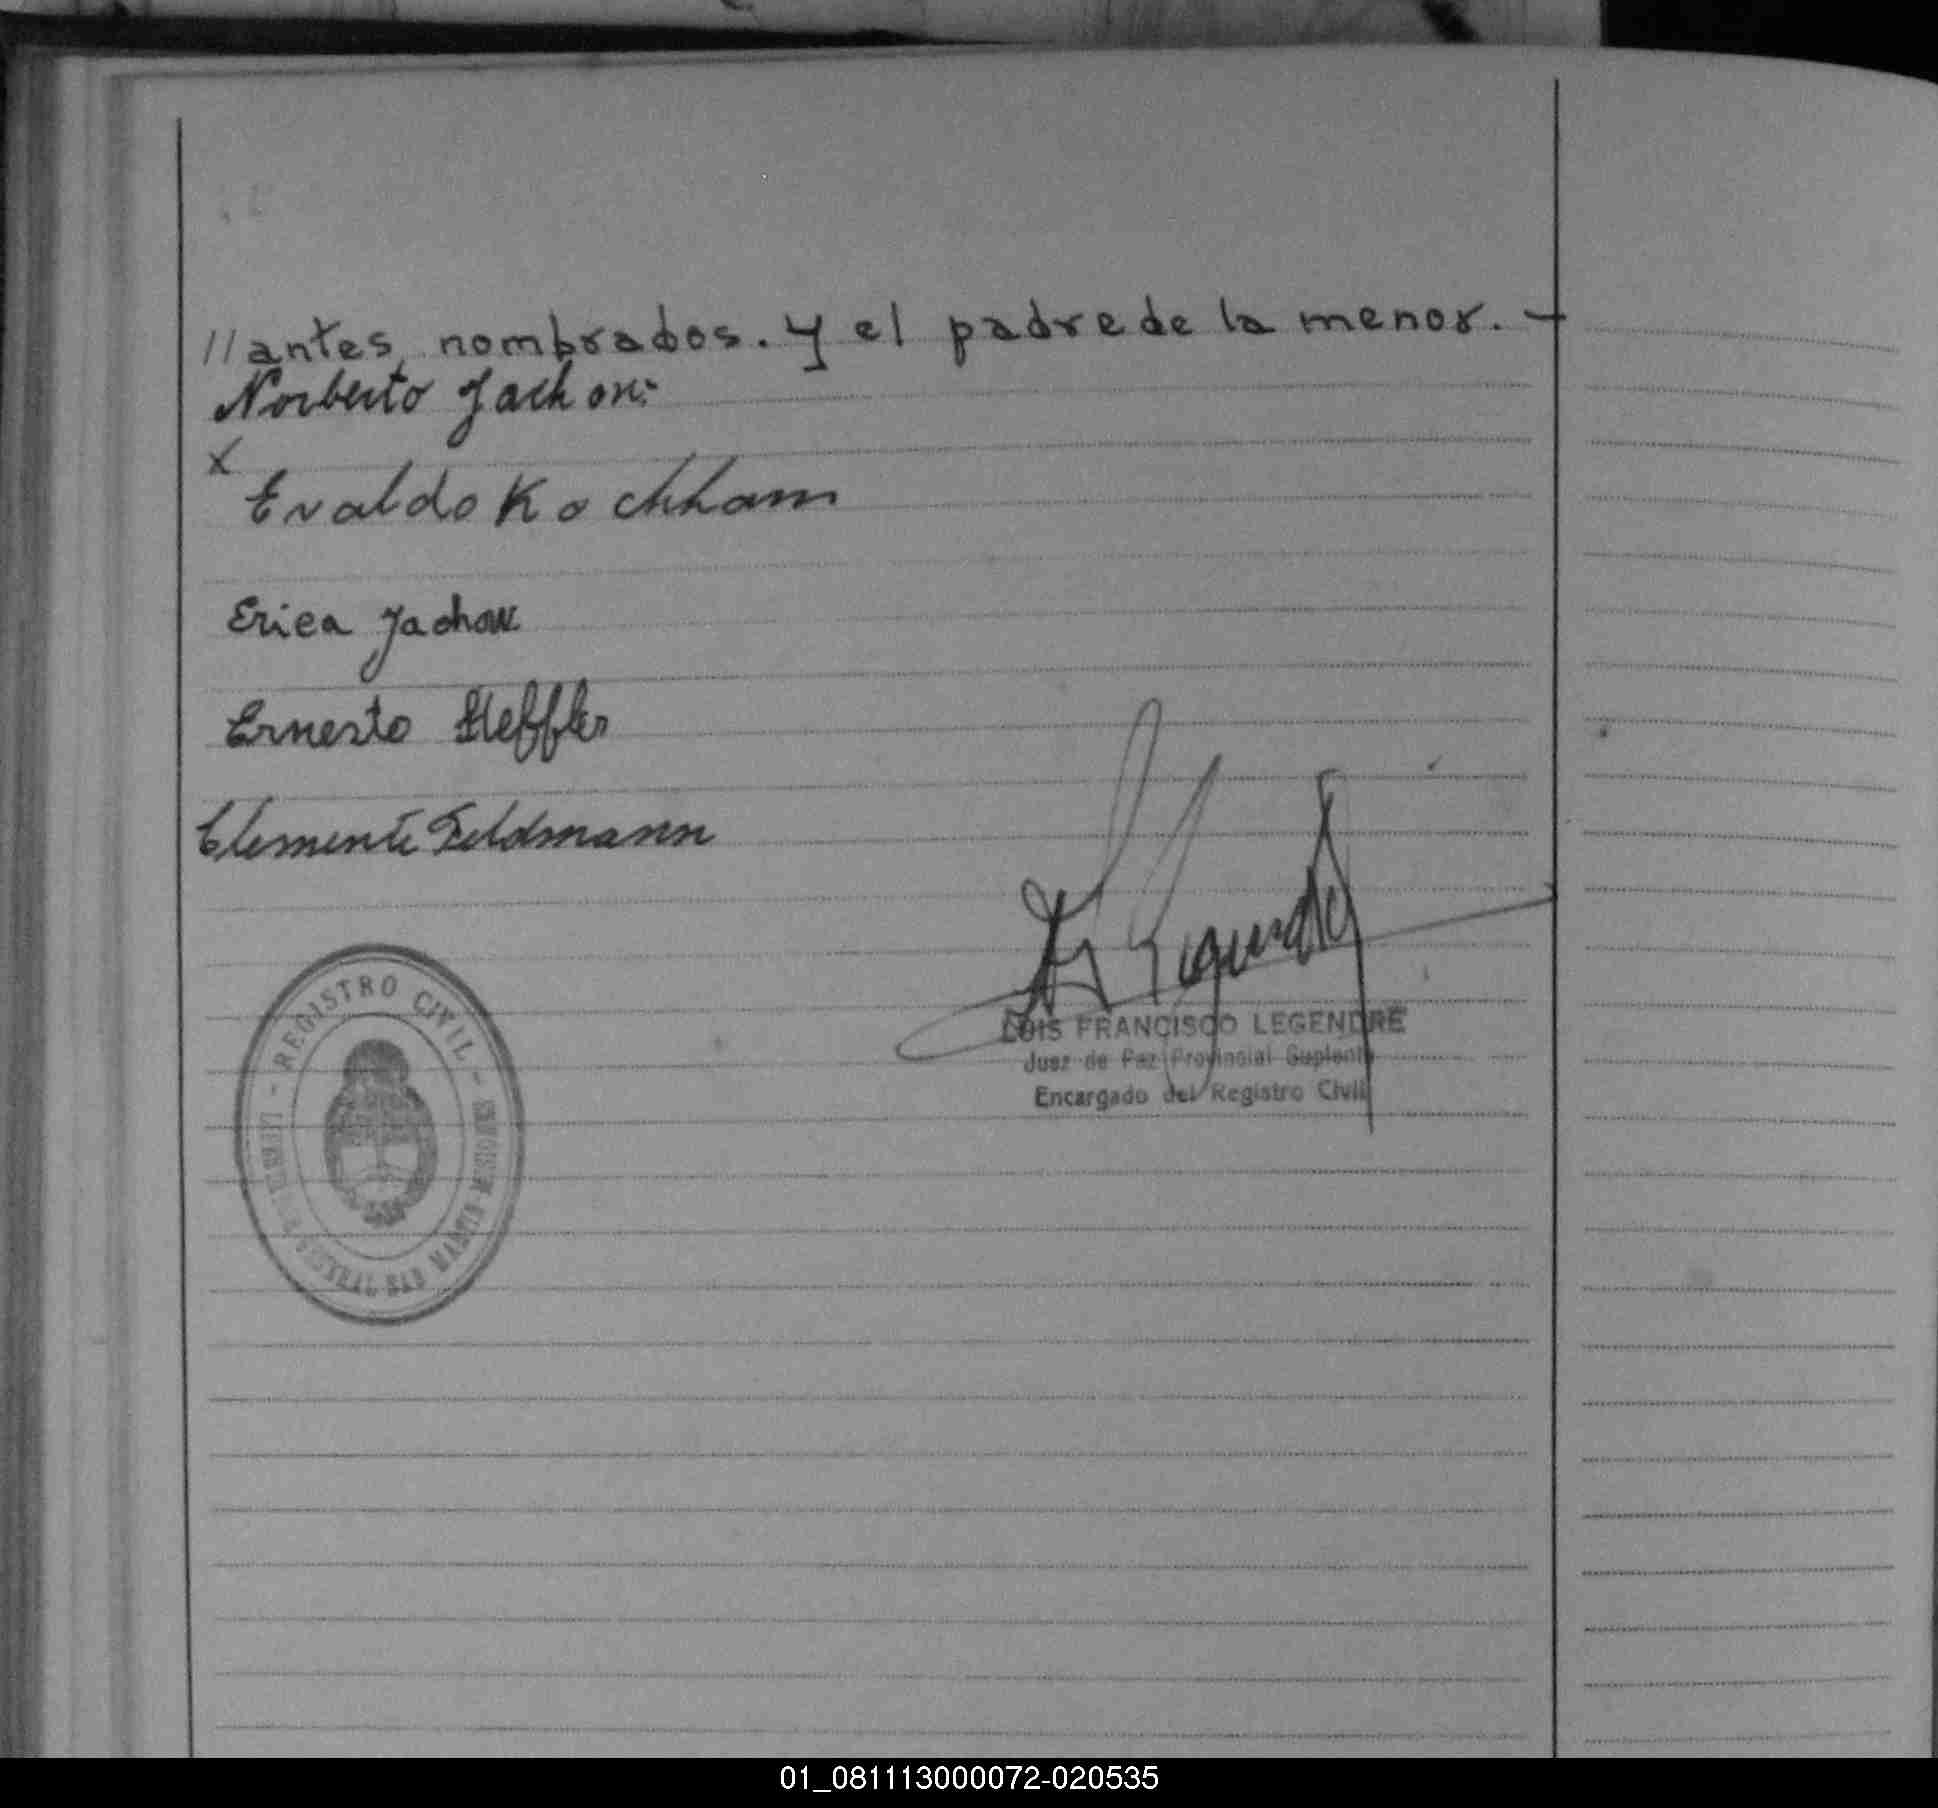 //antes nombrados. y el padre de la menor. -
Norberto Jachow
x
Evaldo Kochham
Erica Jachow
Ernesto Steffler
Clemente Feldmann
LUIS FRANCISCO LEGENDRE
Juez de Paz Provincial Suplente
Encargado del Registro Civil
- REGISTRO CIVIL -
GENERAL SAN MARTIN MISIONES
01_081113000072-020535